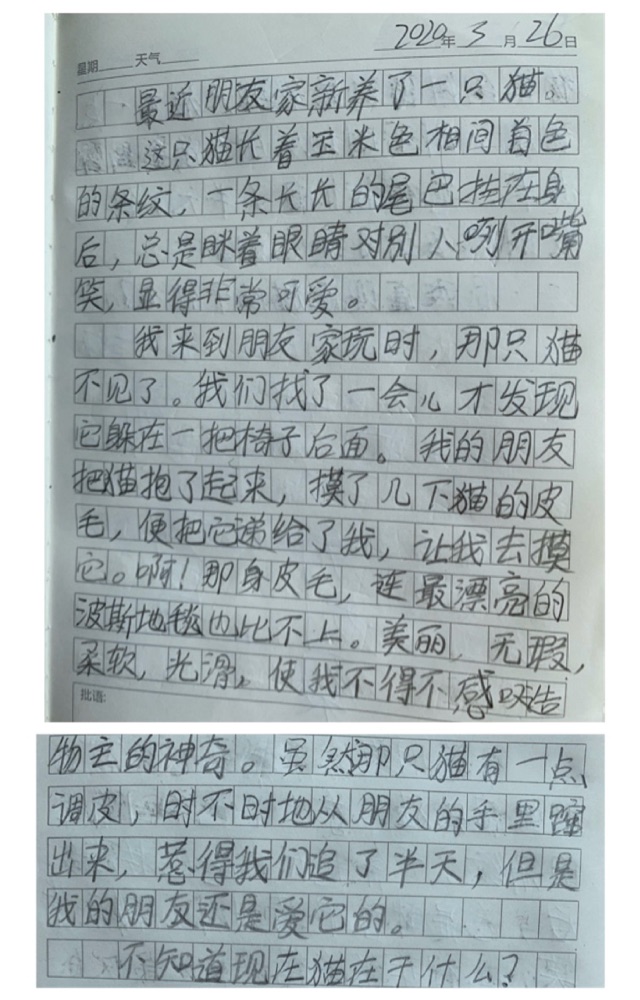 2020年3月26日
星期 天气
最近朋友家新养了一只猫。
这只猫长着玉米色相间白色
的条纹,一条长长的尾巴挂在身
后,总是眯着眼睛对别人咧开嘴
笑,显得非常可爱。
我来到朋友家玩时,那只猫
不见了。我们找了一会儿才发现
它躲在一把椅子后面。我的朋友
把猫抱了起来,摸了几下猫的皮
毛,便把它递给了我,让我去摸
它。啊!那身皮毛,连最漂亮的
波斯地毯也比不上。美丽,无瑕,
柔软,光滑。使我不得不感叹造
批语:
物主的神奇。虽然那只猫有一点
调皮,时不时地从朋友的手里蹿
出来,惹得我们追了半天,但是
我的朋友还是爱它的。
不知道现在猫在干什么?